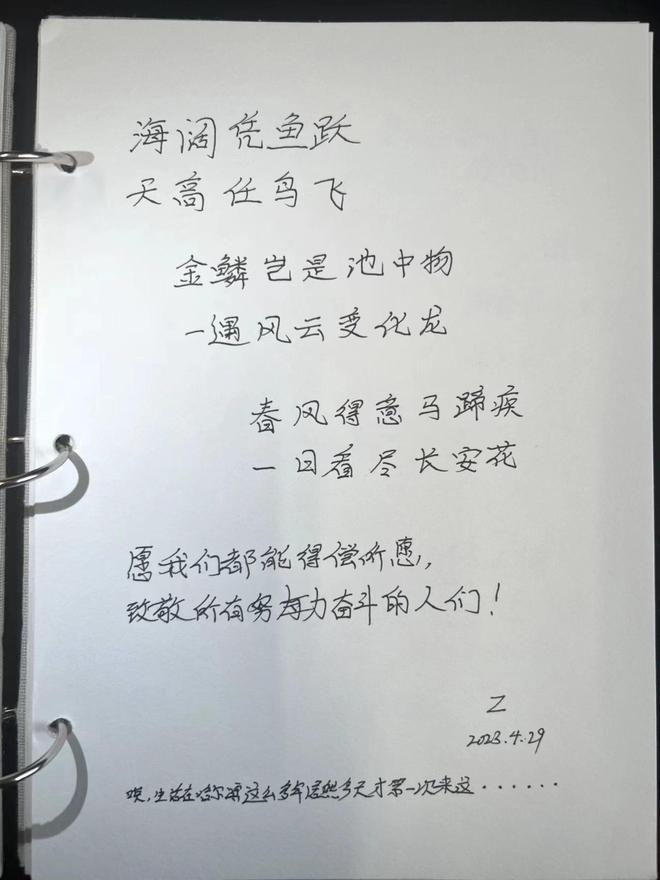 海阔凭鱼跃
天高任鸟飞
金鳞岂是池中物
一遇风云变化龙
春风得意马蹄疾
一日看尽长安花
愿我们都能得偿所愿,
致敬所有努力奋斗的人们!
Z
2023.4.29
唉,生活在哈尔滨这么多年居然今天才第一次来这······